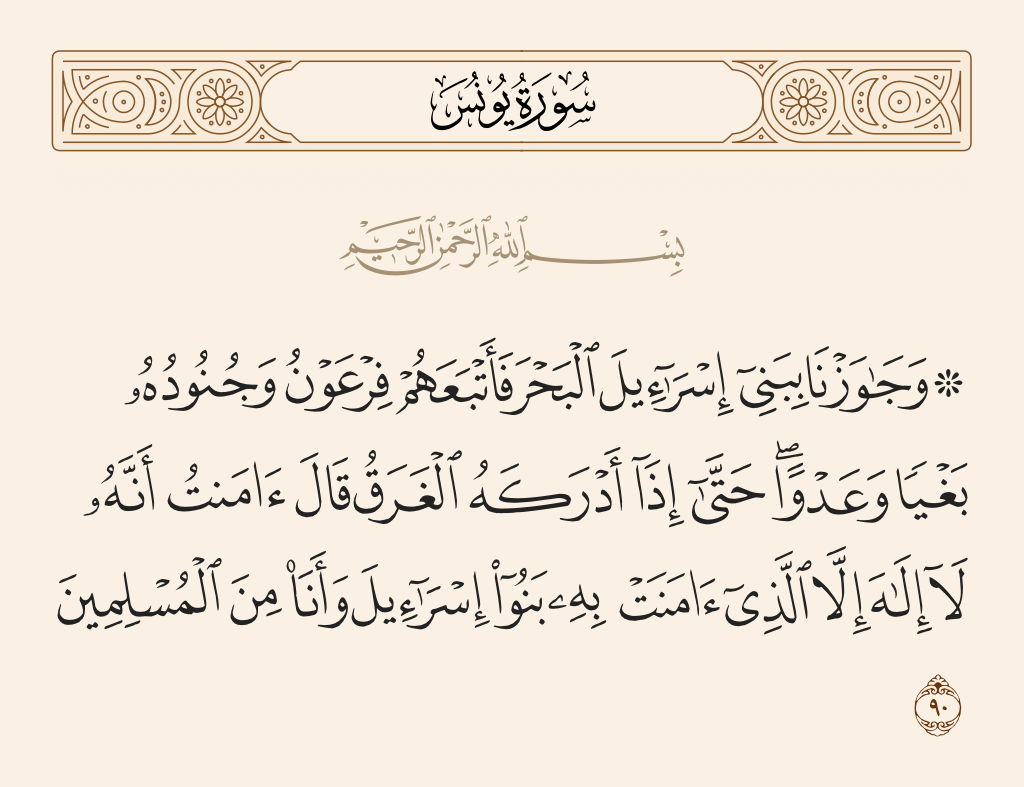 سُورَةُ يُونُسَ
بِسْمِ ٱللَّهِ ٱلرَّحْمَٰنِ ٱلرَّحِيمِ
۞ وَجَٰوَزْنَا بِبَنِىٓ إِسْرَٰٓءِيلَ ٱلْبَحْرَ فَأَتْبَعَهُمْ فِرْعَوْنُ وَجُنُودُهُۥ
بَغْيًا وَعَدْوًا ۖ حَتَّىٰٓ إِذَآ أَدْرَكَهُ ٱلْغَرَقُ قَالَ ءَامَنتُ أَنَّهُۥ
لَآ إِلَٰهَ إِلَّا ٱلَّذِىٓ ءَامَنَتْ بِهِۦ بَنُوٓا۟ إِسْرَٰٓءِيلَ وَأَنَا۠ مِنَ ٱلْمُسْلِمِينَ
٩٠